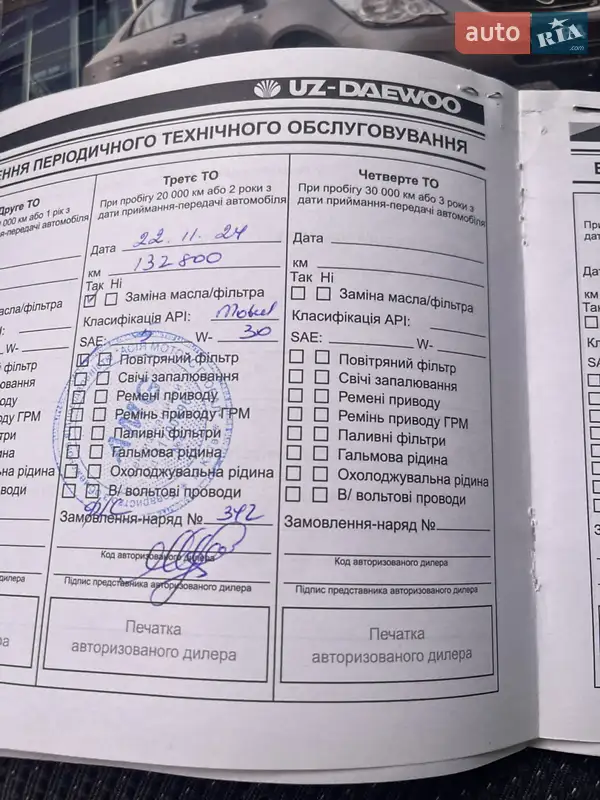 auto RIA .com
UZ-DAEWOO
ПЕРІОДИЧНОГО ТЕХНІЧНОГО ОБСЛУГОВУВАННЯ
Друге ТО
000 км або 1 рік з
приймання-передачі автомобіля
Третє ТО
При пробігу 20 000 км або 2 роки з
дати приймання-передачі автомобіля
Дата 22.11.24
км 132 800
Так Ні
Заміна масла/фільтра
Класифікація API: Mobil
SAE: 5 W- 30
Повітряний фільтр
Свічі запалювання
Ремені приводу
Ремінь приводу ГРМ
Паливні фільтри
Гальмова рідина
Охолоджувальна рідина
В/ вольтові проводи
Замовлення-наряд № 342
Код авторизованого дилера
Підпис представника авторизованого дилера
Печатка
авторизованого дилера
Четверте ТО
При пробігу 30 000 км або 3 роки з
дати приймання-передачі автомобіля
Дата
км
Так Ні
Заміна масла/фільтра
Класифікація API:
SAE: W-
Повітряний фільтр
Свічі запалювання
Ремені приводу
Ремінь приводу ГРМ
Паливні фільтри
Гальмова рідина
Охолоджувальна рідина
В/ вольтові проводи
Замовлення-наряд №
Код авторизованого дилера
Підпис представника авторизованого дилера
Печатка
авторизованого дилера